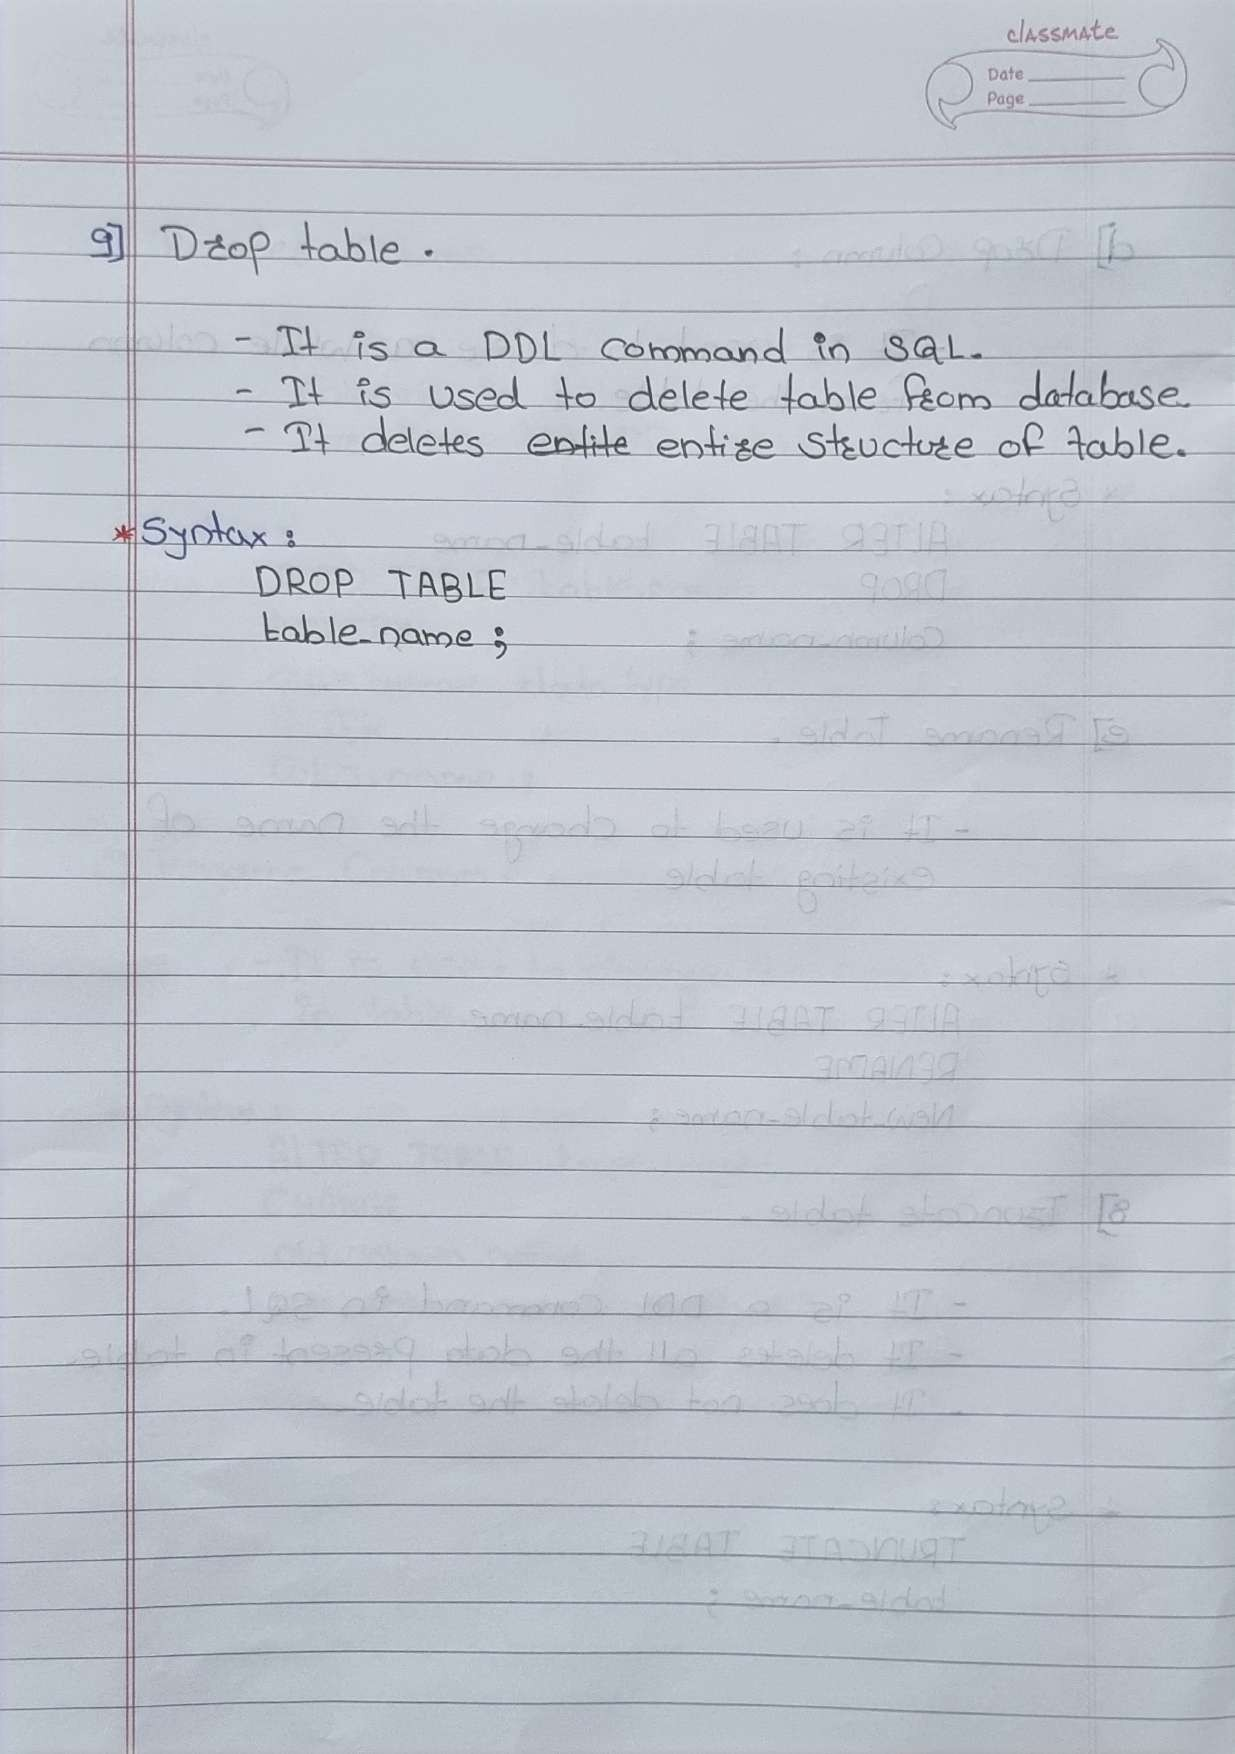 classmate
Date
Page
9] Drop table.
- It is a DDL command in SQL.
- It is used to delete table from database.
- It deletes entite entire structure of table.
* Syntax :
DROP TABLE
table_name ;